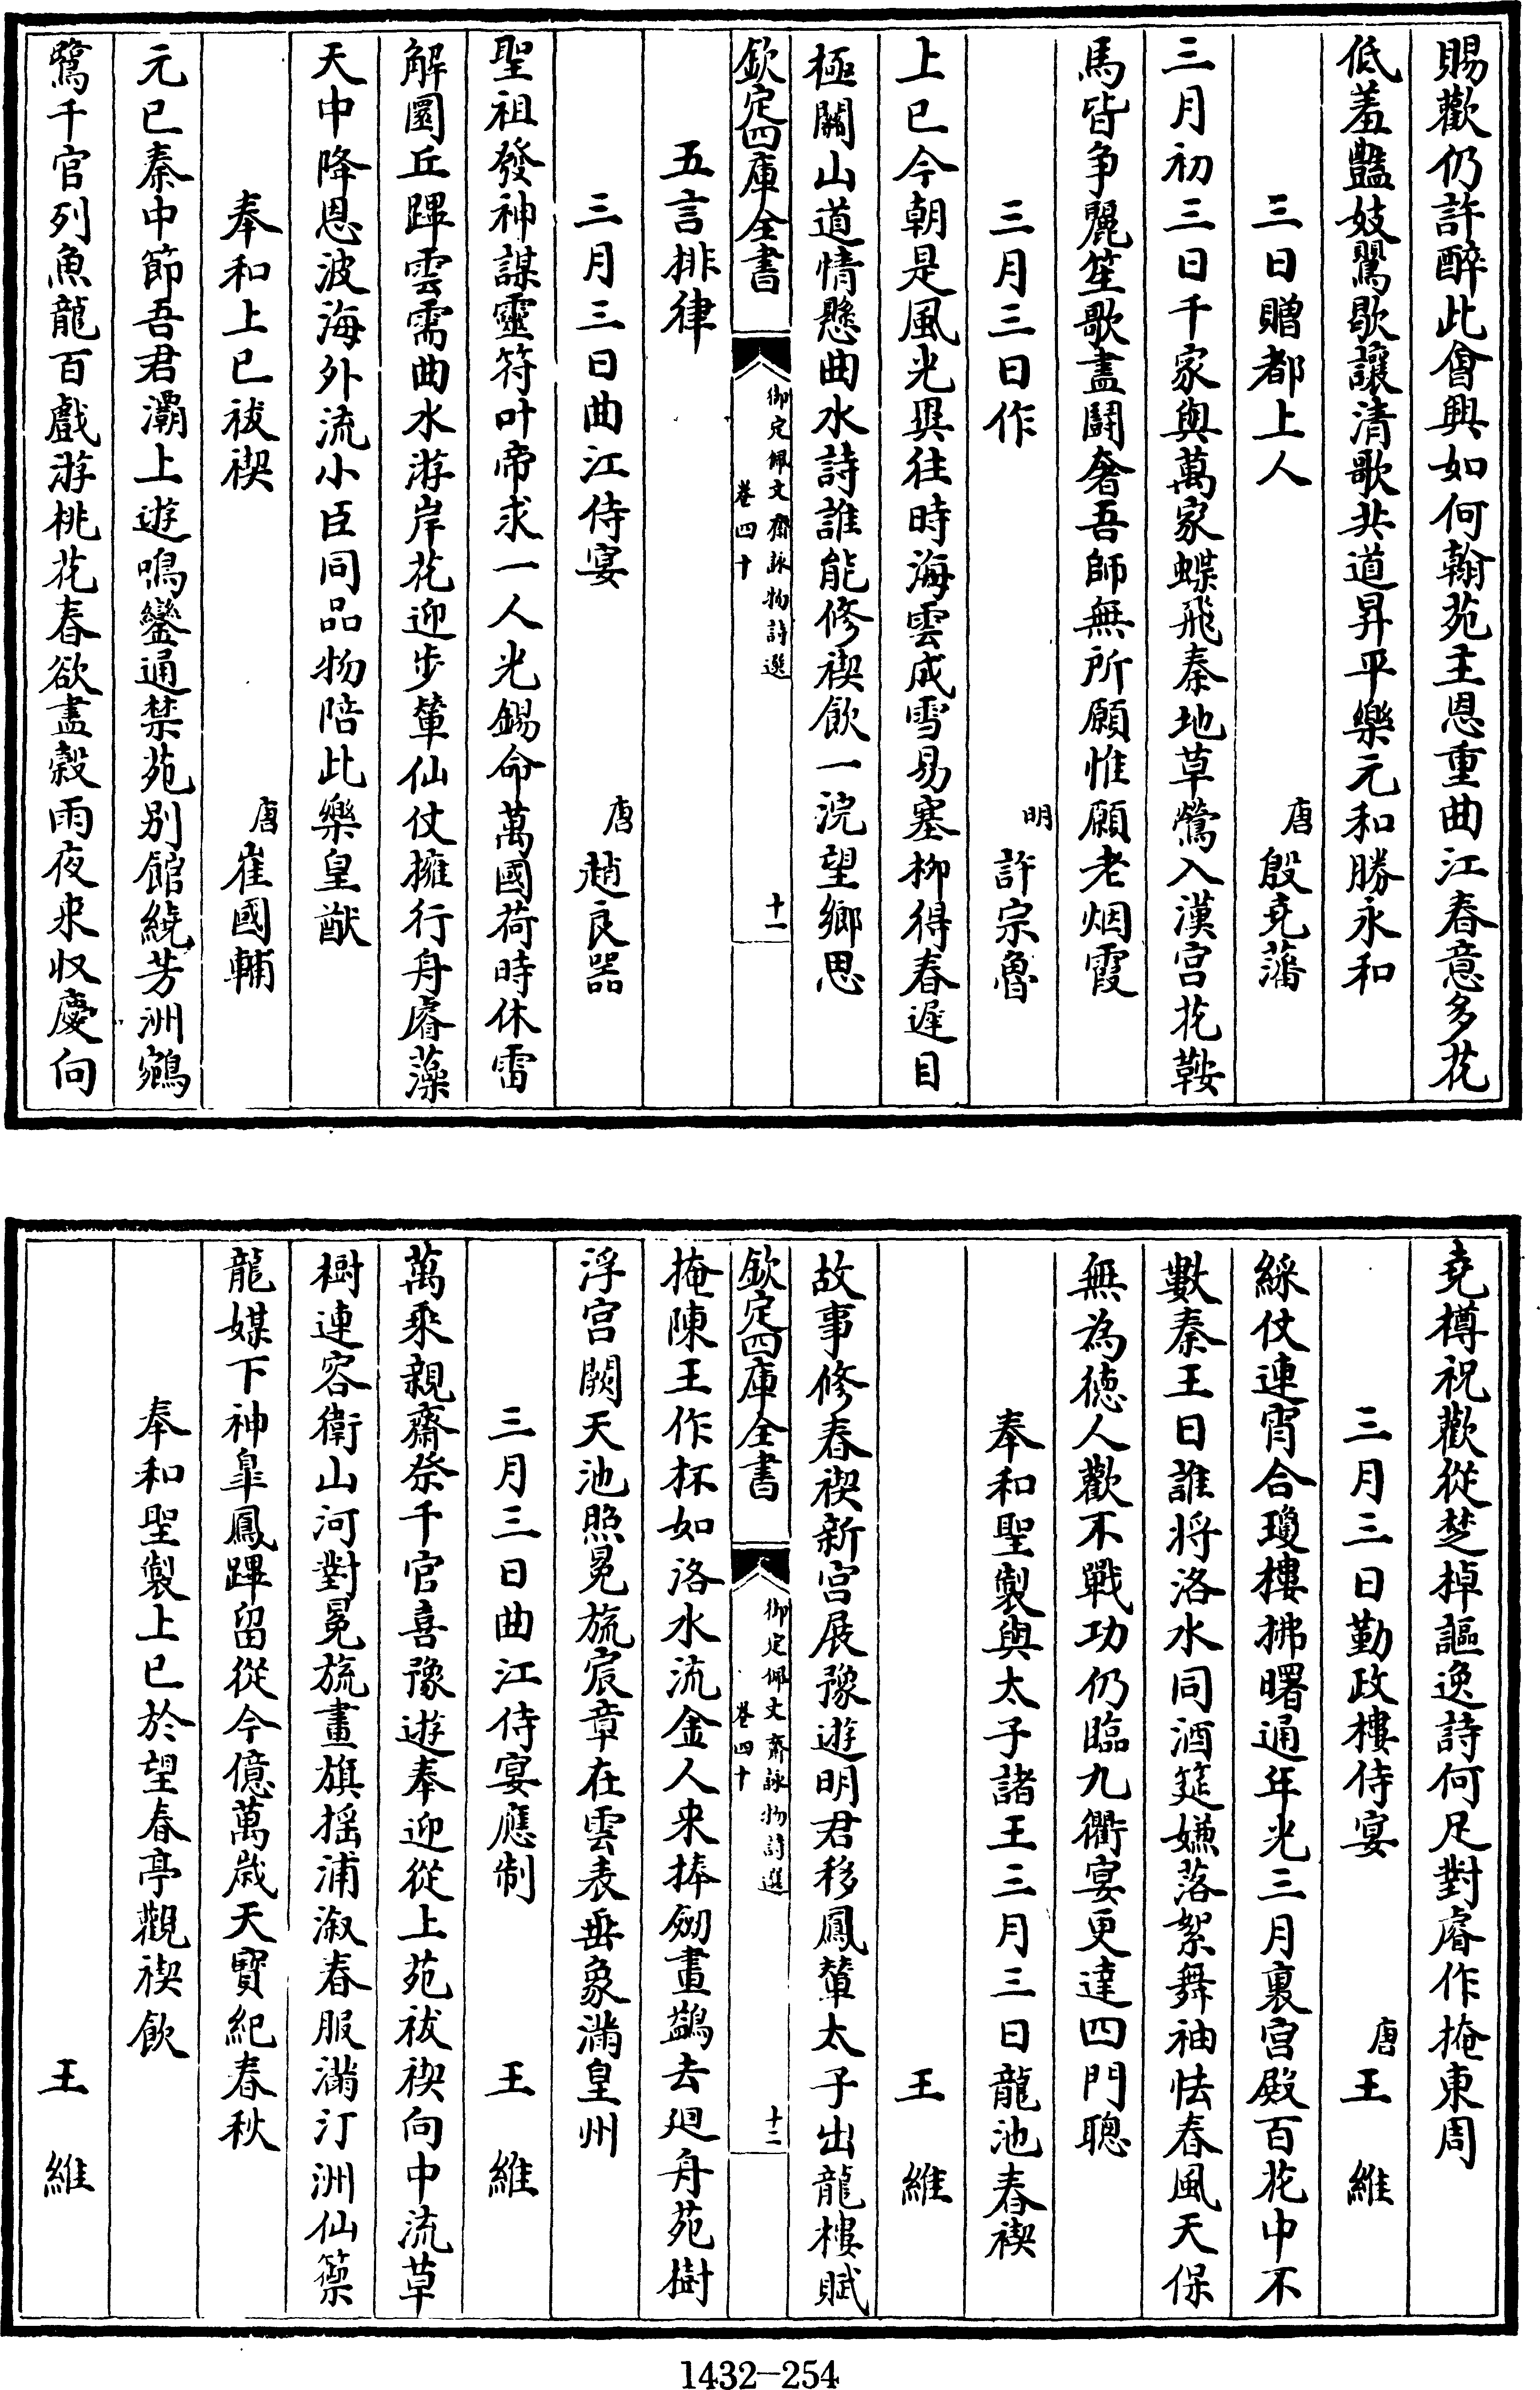 賜歡仍許醉此會興如何翰苑主恩重曲江春意多花
低羞豔妓鶯歇讓清歌共道昇平樂元和勝永和
三日贈都上人
唐殷堯藩
三月初三日千家與萬家蝶飛秦地草鶯入漢宮花鞍
馬皆爭麗笙歌盡鬪奢吾師無所願惟願老烟霞
三月三日作
明許宗魯
上巳今朝是風光異往時海雲成雪易塞柳得春遲目
極關山道情懸曲水詩誰能修禊飲一浣望鄉思
欽定四庫全書
御定佩文齋詠物詩選
卷四十
十一
五言排律
三月三日曲江侍宴
唐趙良器
聖祖發神謀靈符叶帝求一人光錫命萬國荷時休雷
解圜丘蹕雲需曲水游岸花迎步輦仙仗擁行舟睿藻
天中降恩波海外流小臣同品物陪此樂皇猷
奉和上巳祓禊
唐崔國輔
元巳秦中節吾君灞上遊鳴鑾通禁苑别館繞芳洲鵷
鷺千官列魚龍百戲游桃花春欲盡穀雨夜来收慶向
堯樽祝歡從楚棹謳逸詩何足對睿作掩東周
三月三日勤政樓侍宴
唐王維
綵仗連宵合瓊樓拂曙通年光三月裏宮殿百花中不
數秦王日誰將洛水同酒筵嫌落絮舞袖怯春風天保
無為德人歡不戰功仍臨九衢宴更達四門聰
奉和聖製與太子諸王三月三日龍池春禊
王維
故事修春禊新宮展豫遊明君移鳳輦太子出龍樓賦
掩陳王作杯如洛水流金人来捧劒畫鷁去廻舟苑樹
浮宮闕天池照冕旒宸章在雲表垂象滿皇州
欽定四庫全書
御定佩文齋詠物詩選
卷四十
十二
三月三日曲江侍宴應制
王維
萬乘親齋祭千官喜豫遊奉迎從上苑祓禊向中流草
樹連容衛山河對冕旒畫旗揺浦漵春服滿汀洲仙籞
龍媒下神臯鳳蹕留從今億萬歲天寶紀春秋
奉和聖製上巳於望春亭觀禊飲
王維
1432-254